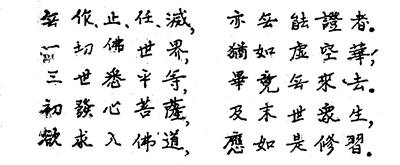 無作止任滅，亦無能證者。
一切佛世界，猶如虛空華；
三世悉平等，畢竟無來去。
初發心菩薩，及末世衆生，
欲求入佛道，應如是修習。